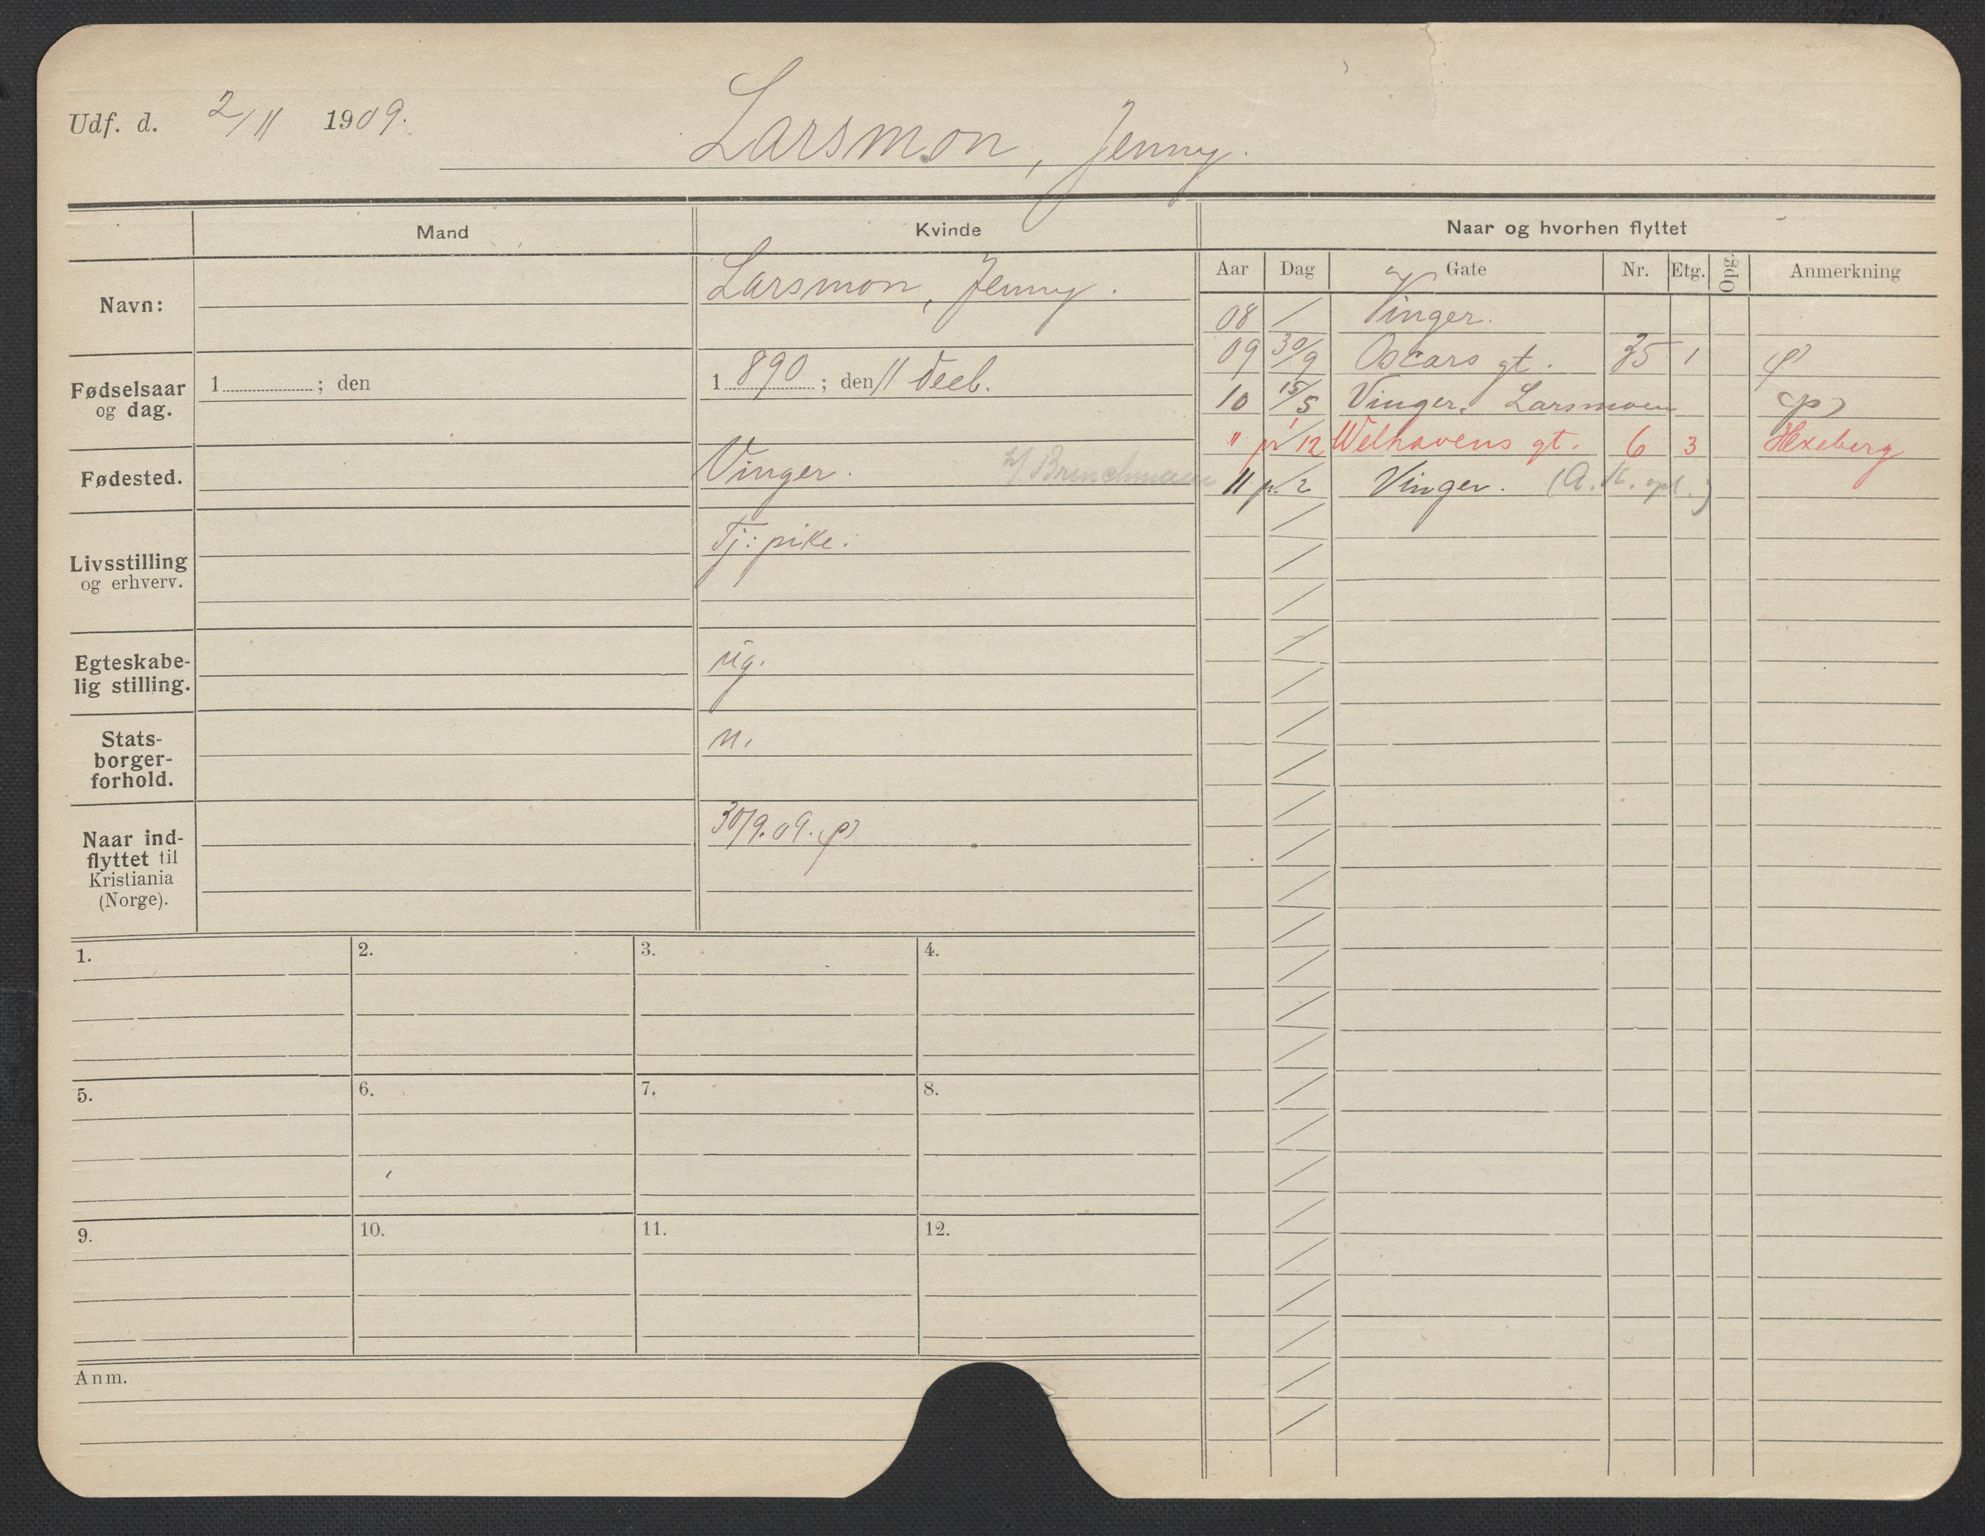 Udf. d. 2/11 1909.
Larsmon, Jenny.
Mand Kvinde Naar og hvorhen flyttet
Aar Dag Gate Nr. Etg. Opg. Anmerkning
Navn: Larsmon, Jenny.
Fødselsaar og dag. 1 ; den 1 890 ; den 11 Decb.
Fødested. Vinger.
Livsstilling og erhverv. Tj: pike.
Egteskabe-
lig stilling. ug.
Stats-
borger-
forhold. n.
Naar ind-
flyttet til
Kristiania
(Norge). 30/9.09.
08 / Vinger.
09 30/9 Oscars gt. 35 1
10 15/5 Vinger. Larsmoen
" 1/12 Welhavens gt. 6 3 Hexeberg
11 p. 2 Vinger. (A. K. opl.)
1. 2. 3. 4.
5. 6. 7. 8.
9. 10. 11. 12.
Anm.